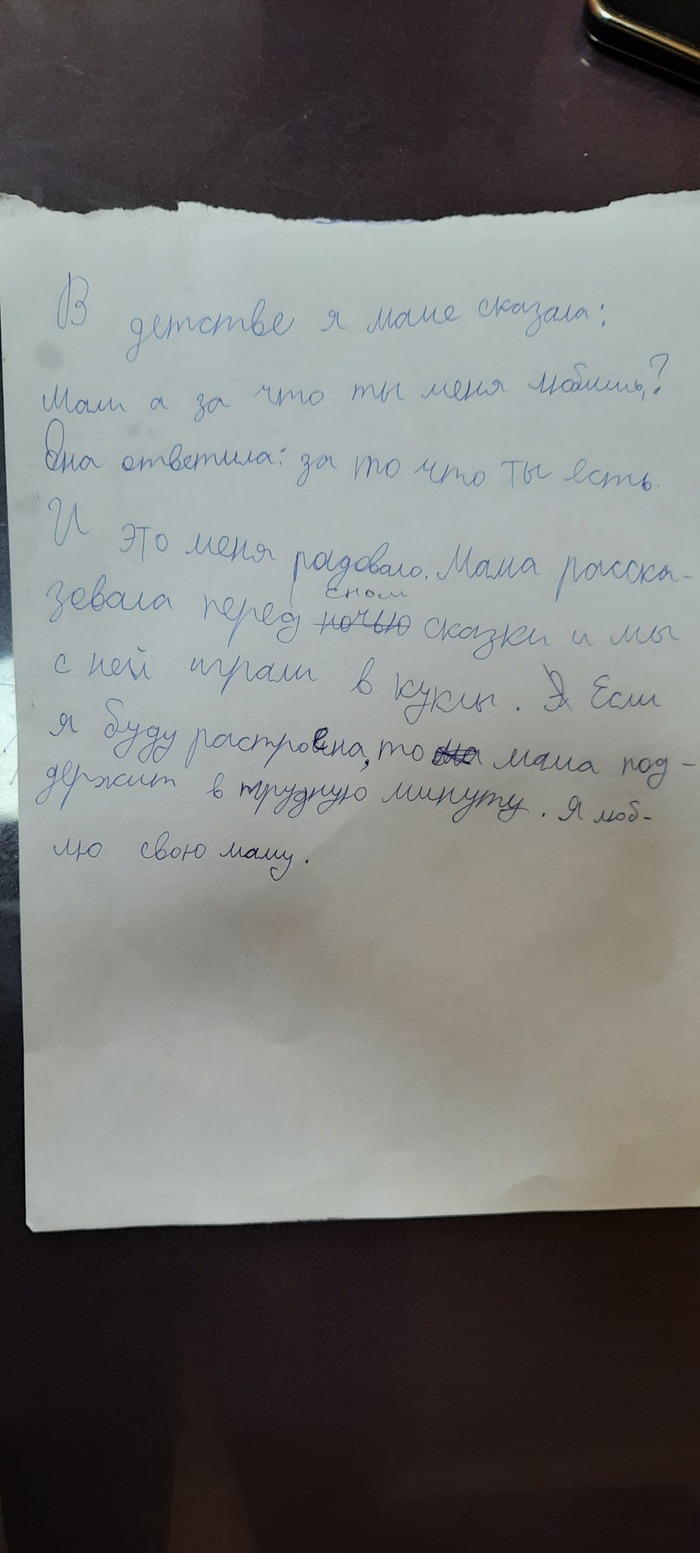 В детстве я маме сказала:
мам а за что ты меня любишь?
Она ответила: за то что ты есть.
И это меня радовало. Мама расска-
зевала перед ~~ночью~~ сном сказки и мы
с ней играли в куклы. ~~Я~~ Если
я буду растроена, то ~~она~~ мама под-
держит в трудную минуту. Я люб-
лю свою маму.